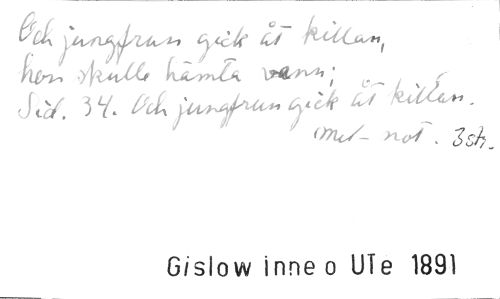 Och jungfrun gick åt killan,
hon skulle hämta vann;
Sid. 34. Och jungfrun gick åt killan.
met-not. 3 str.
Gislow inne o UTe 1891